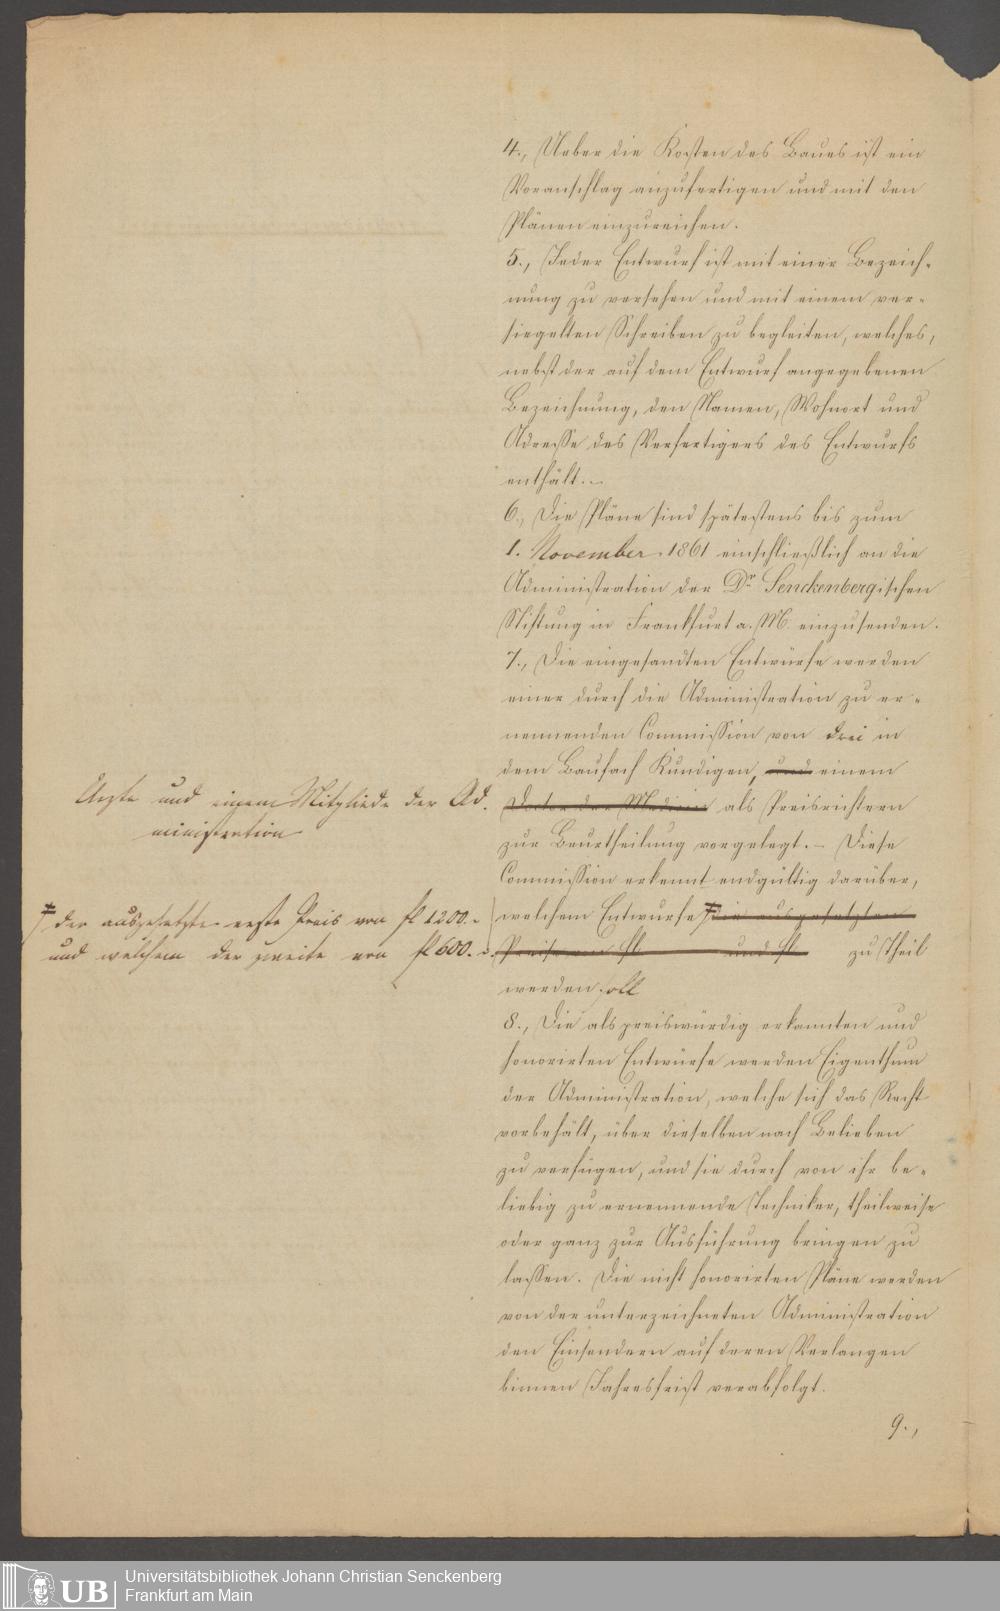 4., Ueber die Kosten des Baues ist ein
Voranschlag anzufertigen und mit den
Plänen einzureichen.
5., Jeder Entwurf ist mit einer Bezeich-
nung zu versehen und mit einem ver-
siegelten Schreiben zu begleiten, welches,
nebst der auf dem Entwurf angegebenen
Bezeichnung, den Namen, Wohnort und
Adresse des Verfertigers des Entwurfs
enthält. –
6., Die Pläne sind spätestens bis zum
1. November 1861 einschließlich an die
Administration der Dr. Senckenbergischen
Stiftung in Frankfurt a. M. einzusenden.
7., Die eingesandten Entwürfe werden
einer durch die Administration zu er-
nennenden Commission von drei in
dem Baufach Kundigen, und einem
Arzte und einem Mitgliede der Ad-
ministration
Doctor der Medicin als Preisrichtern
zur Beurtheilung vorgelegt. – Diese
Commission erkennt endgültig darüber,
welchem Entwurfe die ausgesetzten
der ausgesetzte erste Preis von fl 1200.-
und welchem der zweite von fl 600.-
Preise von fl und fl zu Theil
werden soll
8., Die als preiswürdig erkannten und
honorirten Entwürfe werden Eigenthum
der Administration, welche sich das Recht
vorbehält, über dieselben nach Belieben
zu verfügen, und sie durch von ihr be-
liebig zu ernennende Techniker, theilweise
oder ganz zur Ausführung bringen zu
lassen. Die nicht honorirten Pläne werden
von der unterzeichneten Administration
den Einsendern auf deren Verlangen
binnen Jahresfrist verabfolgt.
9.,
UB
Universitätsbibliothek Johann Christian Senckenberg
Frankfurt am Main